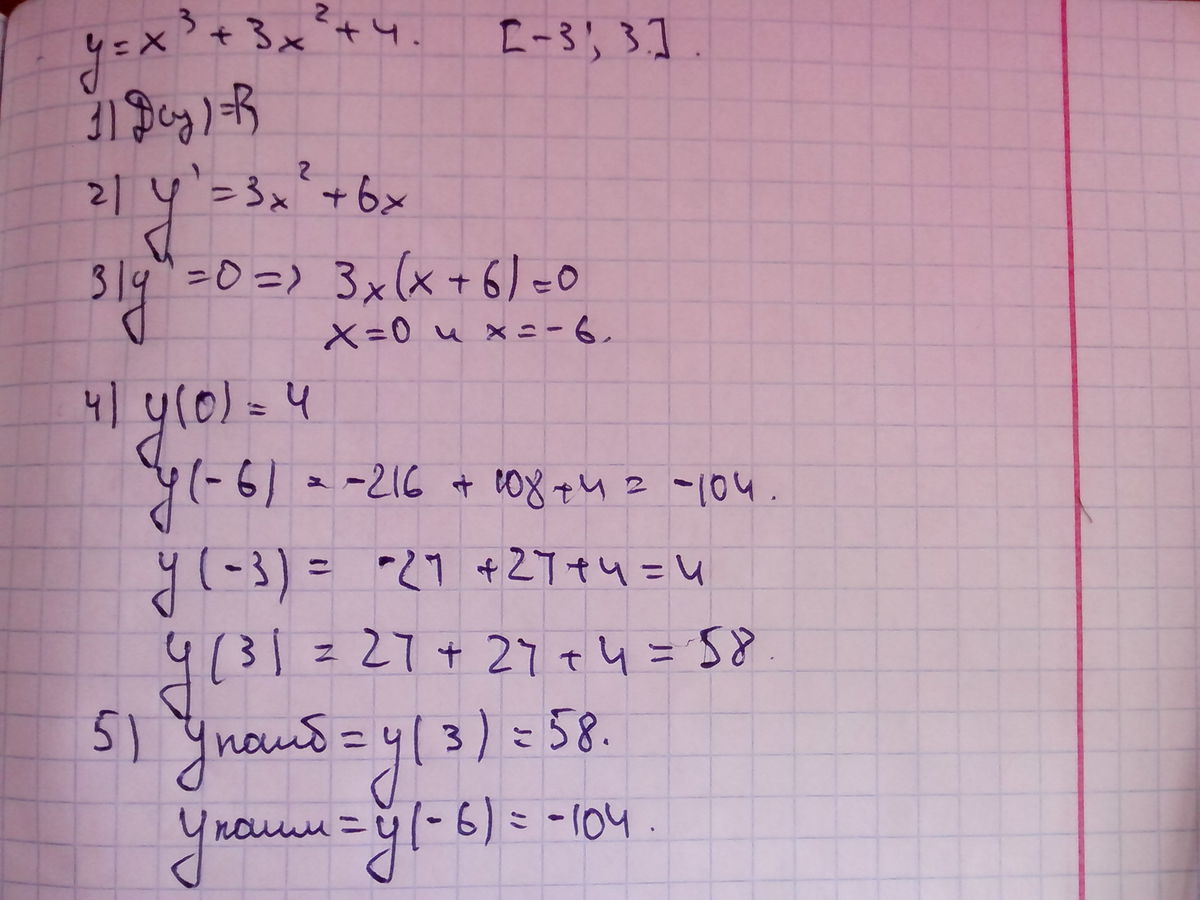 y = x³ + 3x² + 4. [-3; 3].
1) D(y) = R
2) y' = 3x² + 6x
3) y' = 0 => 3x(x + 6) = 0
x = 0 и x = -6.
4) y(0) = 4
y(-6) = -216 + 108 + 4 = -104.
y(-3) = -27 + 27 + 4 = 4
y(3) = 27 + 27 + 4 = 58.
5) yнаиб = y(3) = 58.
yнаим = y(-6) = -104.